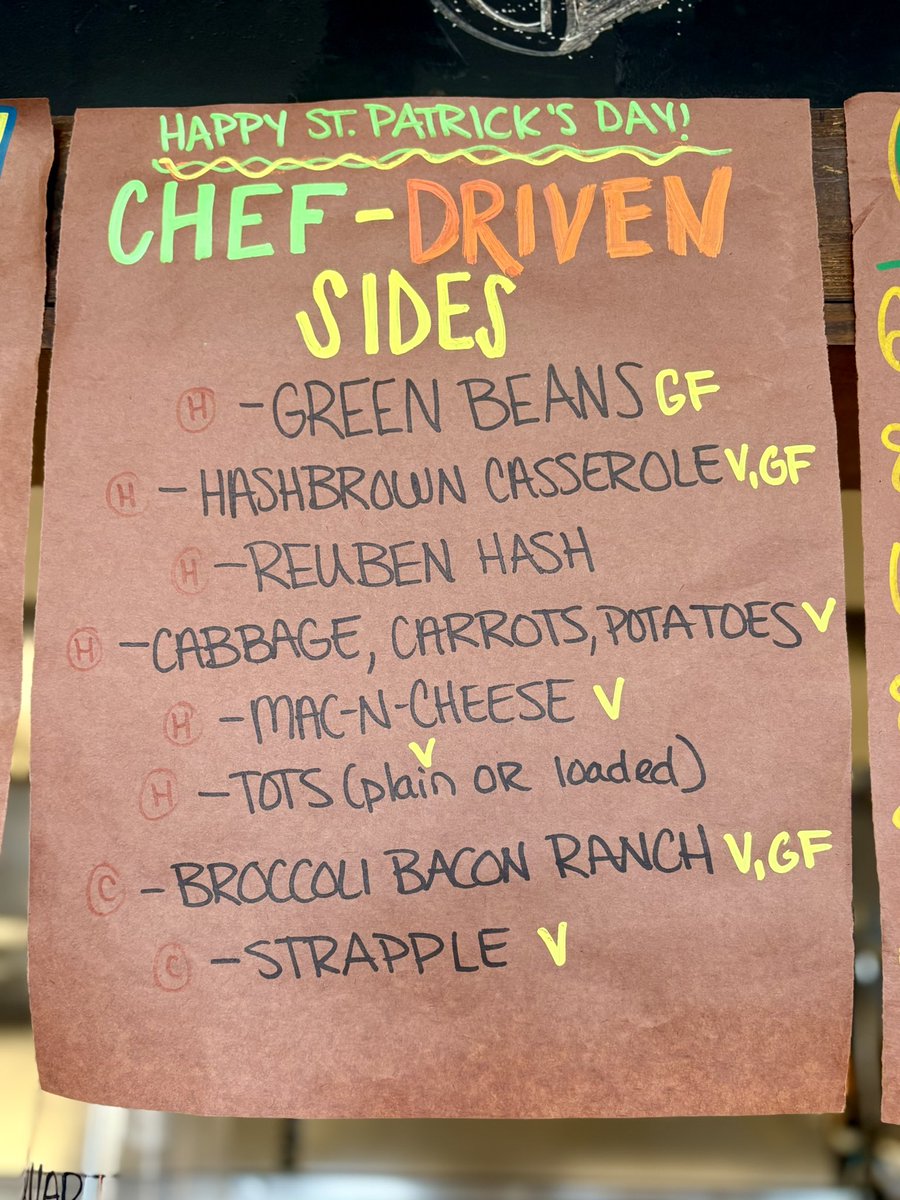 HAPPY ST. PATRICK'S DAY!
CHEF-DRIVEN
SIDES
H - GREEN BEANS GF
H - HASHBROWN CASSEROLE V, GF
H - REUBEN HASH
H - CABBAGE, CARROTS, POTATOES V
H - MAC-N-CHEESE V
V
H - TOTS (plain OR loaded)
C - BROCCOLI BACON RANCH V, GF
C - STRAPPLE V